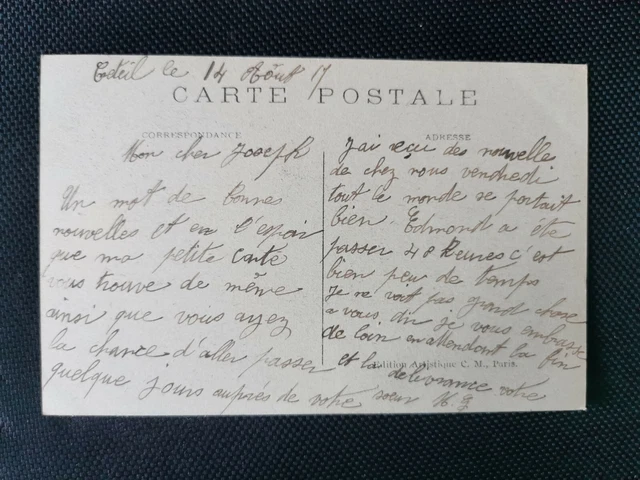 le 14 Août 17
CARTE POSTALE
CORRESPONDANCE
Mon cher Joseph
Un mot de bonnes
nouvelles et en l'espoir
que ma petite carte
vous trouve de même
ainsi que vous ayez
la chance d'aller passer
quelque jours auprès de votre
ADRESSE
J'ai reçu des nouvelle
de chez nous vendredi
tout le monde se portait
bien. Edmond a été
passer 48 heures c'est
bien peu de temps
Je ne voit pas grand chose
a vous dir je vous embrasse
de loin en attendant la fin
et la delivrance votre
soeur
Edition Artistique C. M., Paris.